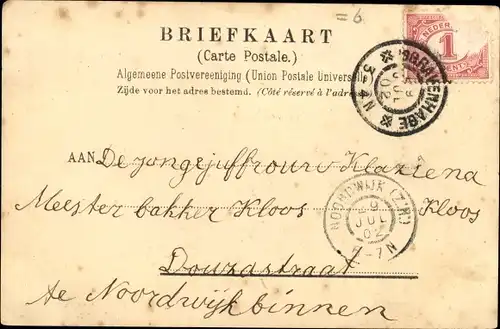 = 6
BRIEFKAART
(Carte Postale.)
Algemeene Postvereeniging (Union Postale Universelle)
Zijde voor het adres bestemd. (Côté réservé à l'adresse
NEDER
1
CENT
'S GRAVENHAGE
8
JUL
02
3-4 N
AAN De jongejuffrouw Klaziena
Kloos
Meester bakker Kloos
NOORDWIJK (Z:H:)
9
JUL
02
-7N
Douzastraat
te Noordwijkbinnen